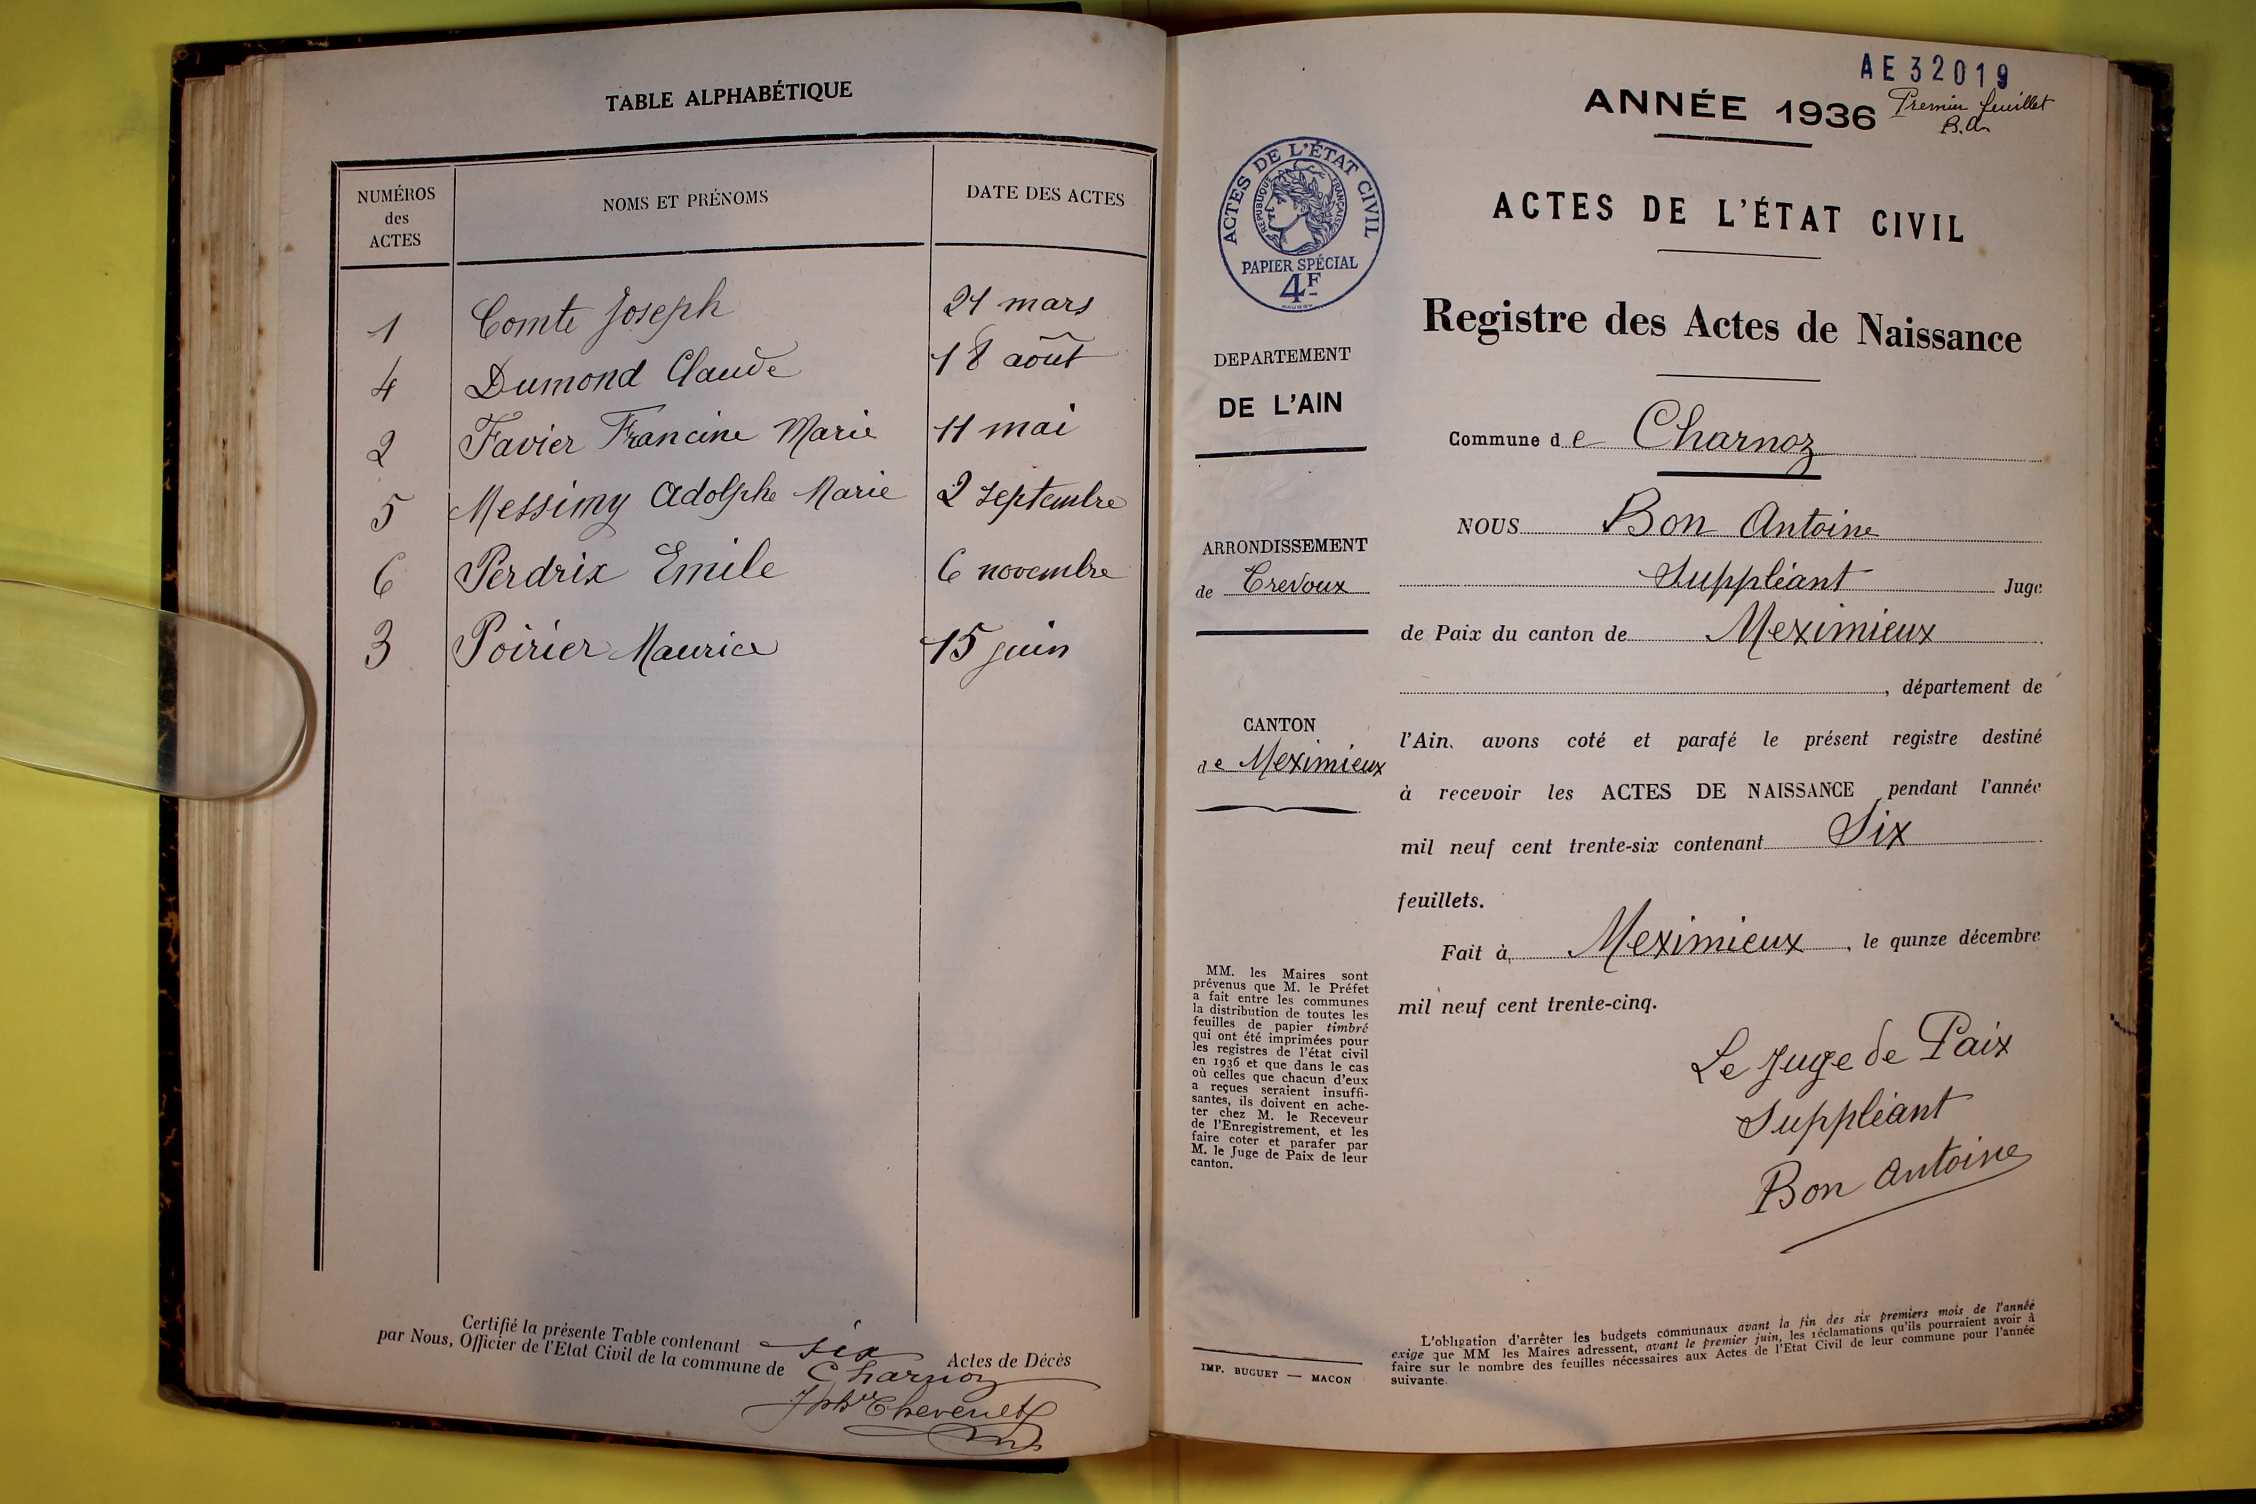 TABLE ALPHABÉTIQUE
NUMÉROS
des
ACTES
NOMS ET PRÉNOMS
DATE DES ACTES
1 Comte Joseph 21 mars
4 Dumond Claude 18 août
2 Favier Francine Marie 11 mai
5 Messimy Adolphe Marie 2 septembre
6 Perdrix Emile 6 novembre
3 Poirier Maurice 15 juin
Certifié la présente Table contenant six Actes de Décès
par Nous, Officier de l'Etat Civil de la commune de Charnoz
AE 32019
ANNÉE 1936
Premier feuillet
B.A
ACTES DE L'ÉTAT CIVIL
RÉPUBLIQUE FRANÇAISE
PAPIER SPÉCIAL
4F
ACTES DE L'ÉTAT CIVIL
Registre des Actes de Naissance
DEPARTEMENT
DE L'AIN
ARRONDISSEMENT
de Trevoux
CANTON
de Meximieux
MM. les Maires sont
prévenus que M. le Préfet
a fait entre les communes
la distribution de toutes les
feuilles de papier timbré
qui ont été imprimées pour
les registres de l'état civil
en 1936 et que dans le cas
où celles que chacun d'eux
a reçues seraient insuffi-
santes, ils doivent en ache-
ter chez M. le Receveur
de l'Enregistrement, et les
faire coter et parafer par
M. le Juge de Paix de leur
canton.
IMP. BUGUET — MACON
Commune de Charnoz
NOUS Bon Antoine
Suppléant Juge
de Paix du canton de Meximieux
, département de
l'Ain, avons coté et parafé le présent registre destiné
à recevoir les ACTES DE NAISSANCE pendant l'année
mil neuf cent trente-six contenant Six
feuillets.
Fait à, Meximieux, le quinze décembre
mil neuf cent trente-cinq.
Le Juge de Paix
Suppléant
Bon Antoine
L'obligation d'arrêter les budgets communaux avant la fin des six premiers mois de l'année
exige que MM les Maires adressent, avant le premier juin, les réclamations qu'ils pourraient avoir à
faire sur le nombre des feuilles nécessaires aux Actes de l'Etat Civil de leur commune pour l'année
suivante.